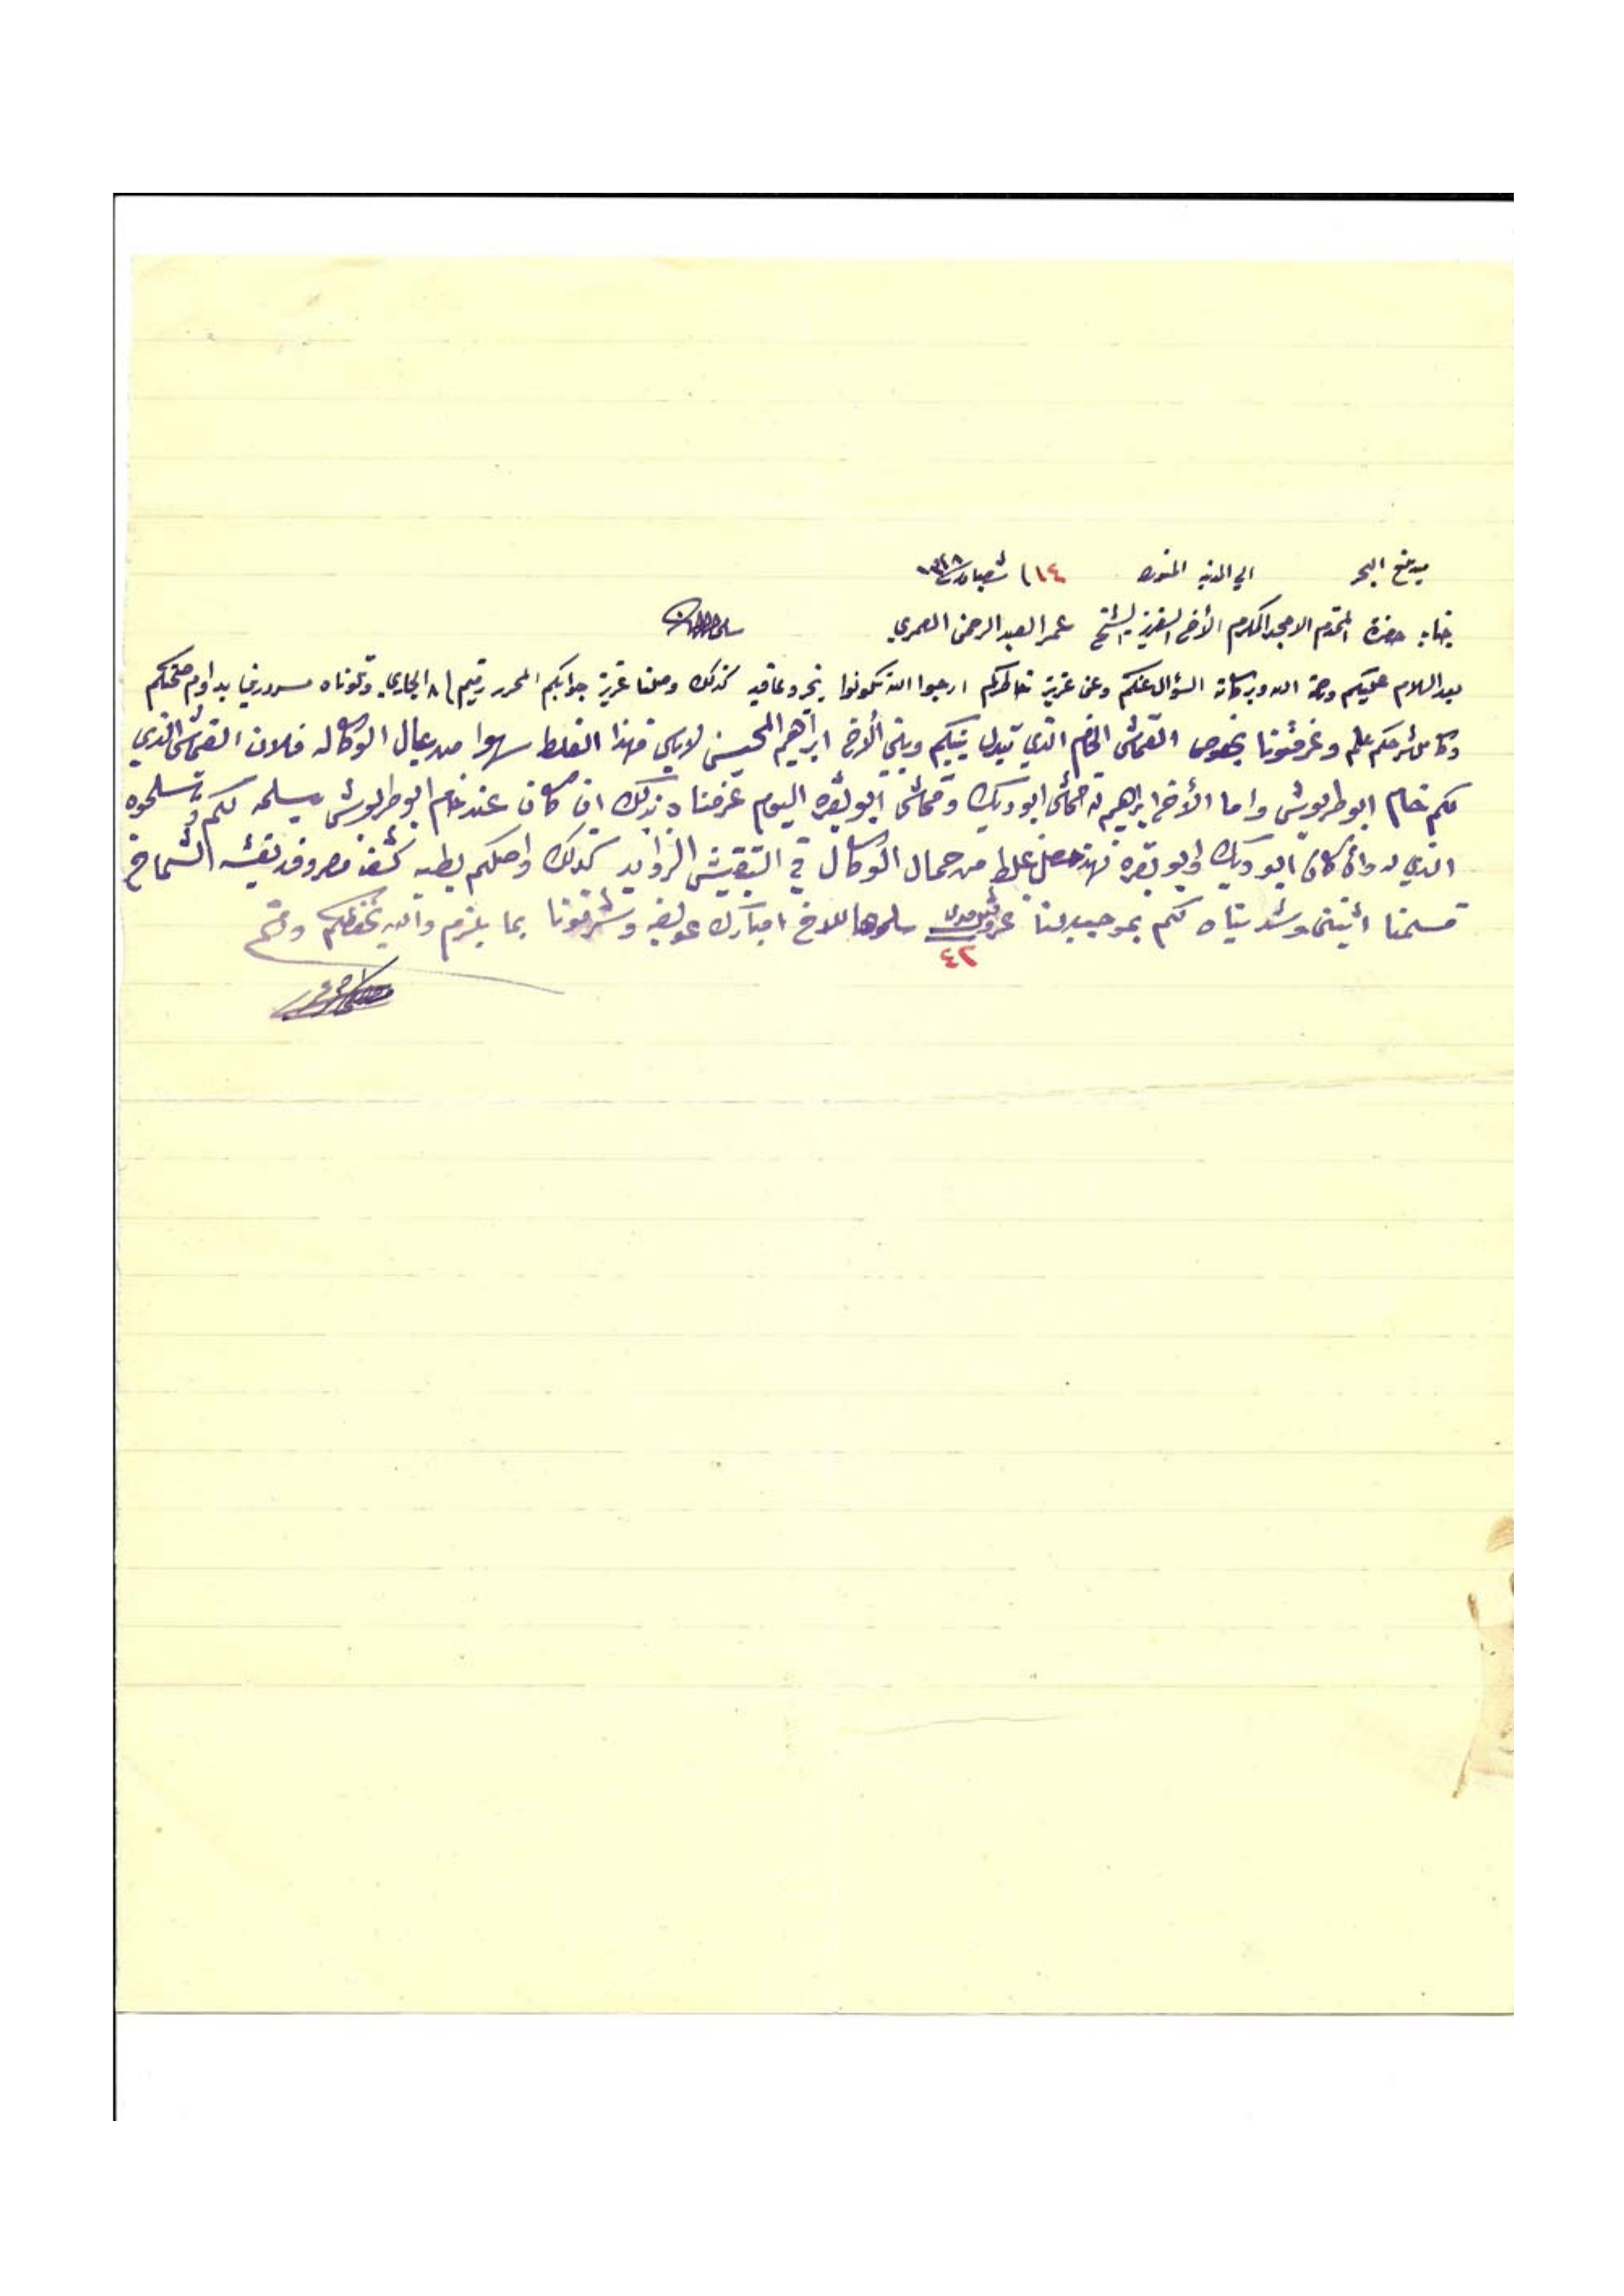 من ينبع البحر الي المدينه المنوره ١٤ شعبان
جناب حضرة المحترم الامجد المكرم الأخ العزيز الشيخ عمر العبد الرحمن العمري سلمه الله
بعد السلام عليكم ورحمة الله وبركاته السؤال عنكم وعن عزيز خاطركم ارجوا الله تكونوا بخير وعافيه كذلك وصلنا عزيز جوابكم المحرر رقيم ٨ الجاري وتلوناه مسرورين بدوام صحتكم
وكامل شرحكم علم وعرفتونا بخصوص القماش الخام الذي تبدل بينكم وبين الأخ ابراهيم المحيسن لاباس فهذا الغلط سهوا من عمال الوكاله فلان القماش الذي
لكم خام ابو طربوش واما الأخ ابراهيم له قماش ابو ديك وقماش ابو بقره اليوم عرفناه بذلك ان كان عنده خام ابو طربوش يسلمه لكم وتسلموه
الذي له وان كان ابو ديك وابو بقره فهذا حصل غلط من حمال الوكال في التبقيش الزوايد كذلك واصلكم بطيه كشف مصروف بقشه الشماخ
تسلمنا اثنين وشديناه لكم بموجبه لنا سلموها للاخ امبارك عولقه وشرفونا بما يلزم والله يحفظكم ودمتم
٤٢